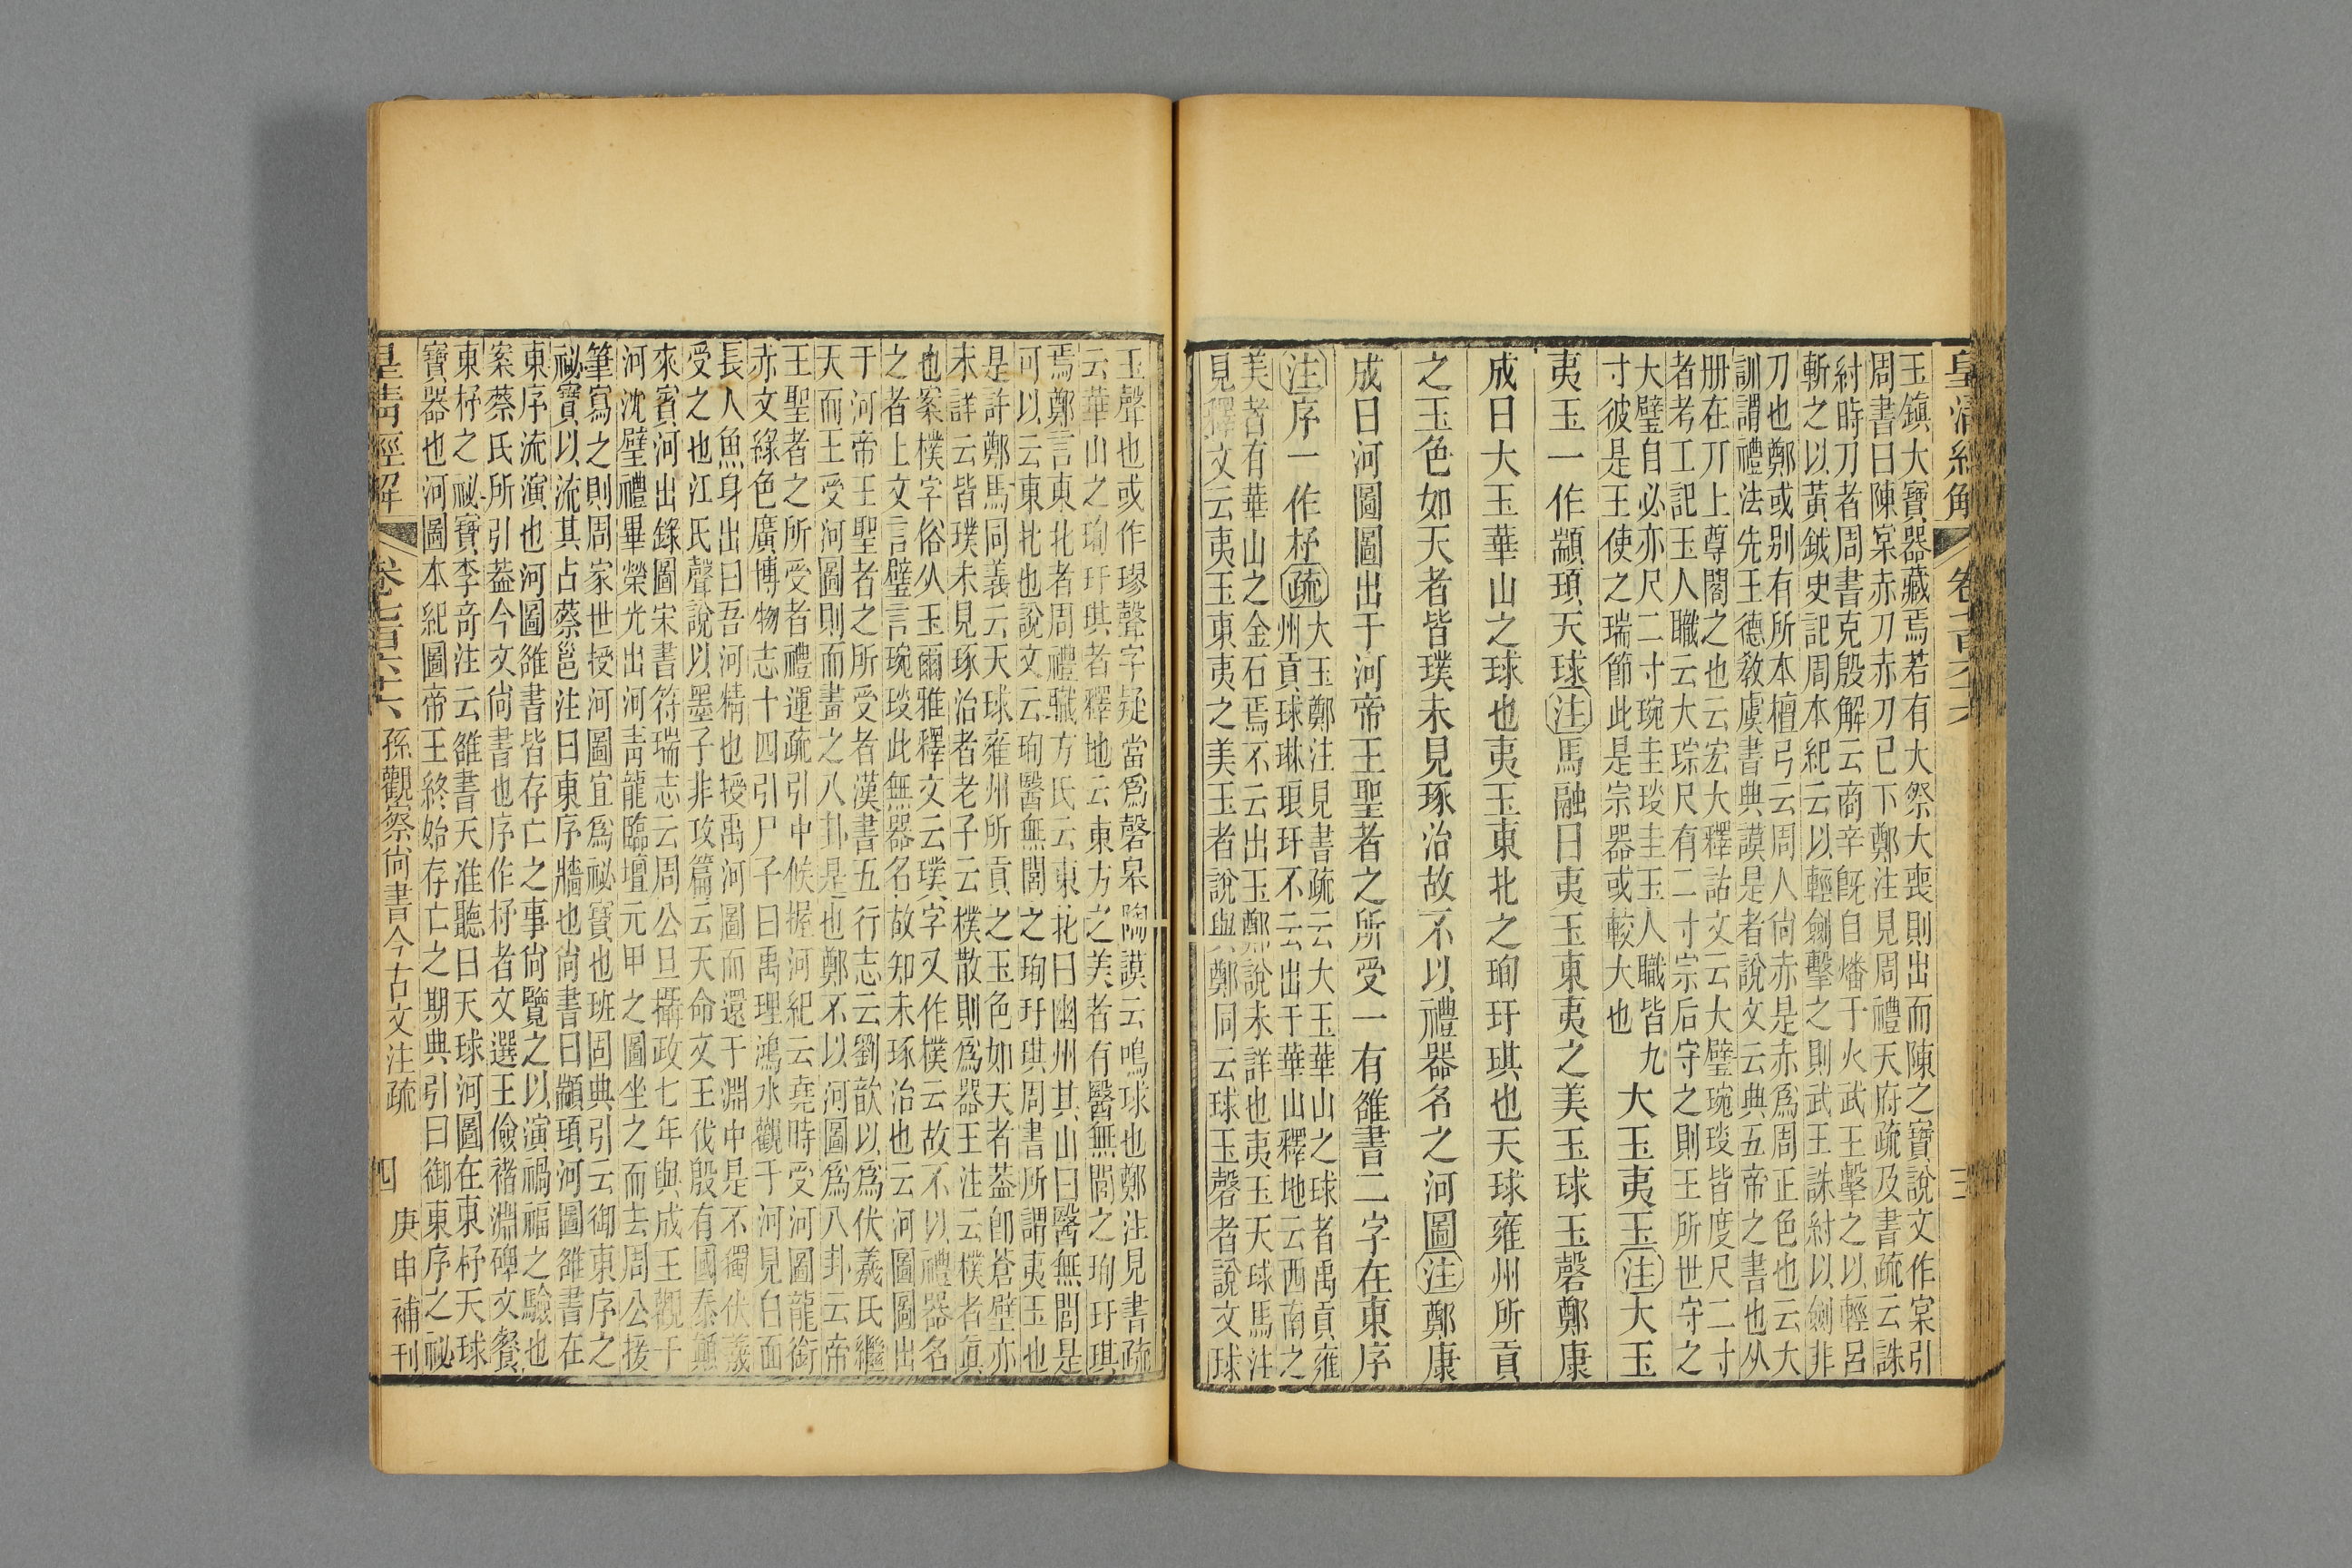 皇清經解
卷七百六十六
三
玉鎮大寶器藏焉若有大祭大喪則出而陳之寶說文作宲引
周書曰陳宲赤刀赤刀已下鄭注見周禮天府疏及書疏云誅
紂時刀者周書克殷解云商辛旣自燔于火武王擊之以輕呂
斬之以黃鉞史記周本紀云以輕劍擊之則武王誅紂以劍非
刀也鄭或別有所本檀弓云周人尙赤是赤爲周正色也云大
訓謂禮法先王德敎虞書典謨是者說文云典五帝之書也从
册在丌上尊閣之也云宏大釋詁文云大璧琬琰皆度尺二寸
者考工記玉人職云大琮尺有二寸宗后守之則王所世守之
大璧自必亦尺二寸琬圭琰圭玉人職皆九
寸彼是王使之瑞節此是宗器或較大也
大玉夷玉注大玉
夷玉一作顓頊天球注馬融曰夷玉東夷之美玉球玉磬鄭康
成曰大玉華山之球也夷玉東北之珣玗琪也天球雍州所貢
之玉色如天者皆璞未見琢治故不以禮器名之河圖注鄭康
成曰河圖圖出于河帝王聖者之所受一有雒書二字在東序
注序一作杼疏
大玉鄭注見書疏云大玉華山之球者禹貢雍
州貢球琳琅玕不云出于華山釋地云西南之
美者有華山之金石焉不云出玉鄭說未詳也夷玉天球馬注
見釋文云夷玉東夷之美玉者說與鄭同云球玉磬者說文球
玉聲也或作璆聲字疑當爲磬皋陶謨云鳴球也鄭注見書疏
云華山之珣玗琪者釋地云東方之美者有醫無閭之珣玗琪
焉鄭言東北者周禮職方氏云東北曰幽州其山曰醫無閭是
可以云東北也說文云珣醫無閭之珣玗琪周書所謂夷玉也
是許鄭馬同義云天球雍州所貢之玉色如天者葢卽蒼璧亦
未詳云皆璞未見琢治者老子云樸散則爲器王注云樸者眞
也案樸字俗从玉爾雅釋文云璞字又作樸云故不以禮器名
之者上文言璧言琬琰此無器名故知未琢治也云河圖圖出
于河帝王聖者之所受者漢書五行志云劉歆以爲伏羲氏繼
天而王受河圖則而畫之八卦是也鄭不以河圖爲八卦云帝
王聖者之所受者禮運疏引中候握河紀云堯時受河圖龍銜
赤文綠色廣博物志十四引尸子曰禹理鴻水觀于河見白面
長人魚身出曰吾河精也授禹河圖而還于淵中是不獨伏羲
受之也江氏聲說以墨子非攻篇云天命文王伐殷有國泰顚
來賓河出綠圖宋書符瑞志云周公旦攝政七年與成王觀于
河沈璧禮畢榮光出河靑龍臨壇元甲之圖坐之而去周公援
筆寫之則周家世授河圖宜爲祕寶也班固典引云御東序之
祕寶以流其占蔡邕注曰東序牆也尙書曰顓頊河圖雒書在
東序流演也河圖雒書皆存亡之事尙覽之以演禍福之驗也
案蔡氏所引葢今文尙書也序作杼者文選王儉褚淵碑文餐
東杼之祕寶李奇注云雒書天准聽曰天球河圖在東杼天球
寶器也河圖本紀圖帝王終始存亡之期典引曰御東序之祕
皇清經解
卷七百六十六
孫觀察尙書今古文注疏
四
庚申補刊